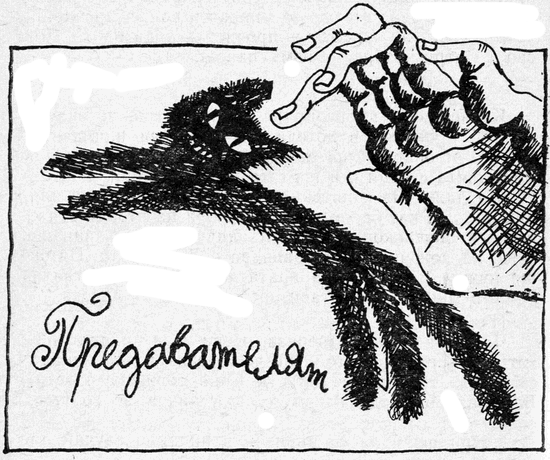 Предавателят